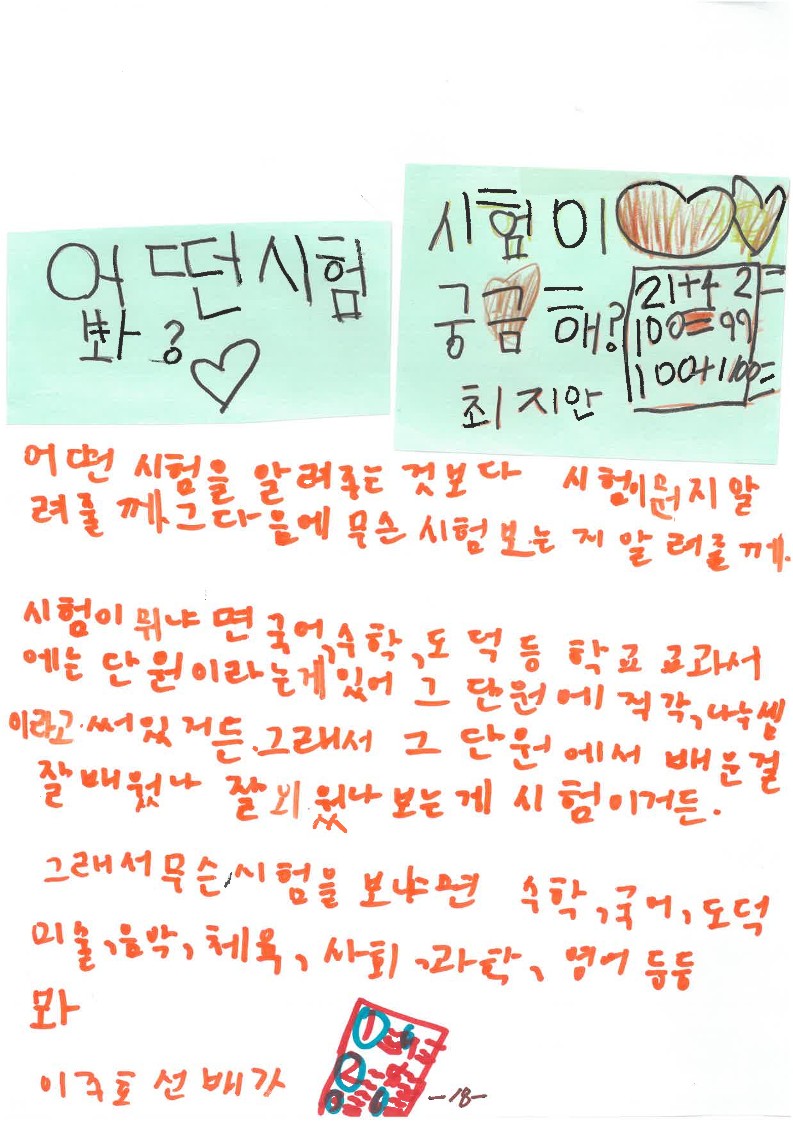 어떤시험
봐?
시험이
궁금해?
최지안
21+4 2=
100=99
100+1100=
어떤 시험을 알려주는 것보다 시험이뭔지알
려줄께.그다음에 무슨 시험보는지 알려줄께.
시험이 뭐냐면 국어,수학,도덕등 학교 료과서
에는 단원이라는게있어 그 단원에 직각,나누셈
이라고 써있저든.그래서 그 단원에서 배운걸
잘배웠나 잘외웠나 보는게 시험이거든.
그래서무슨시험을 보냐면 수학,국어,도덕
미술,음악,체육,사회,과학,영어등등
봐
이주호선배가
1
2
-18-